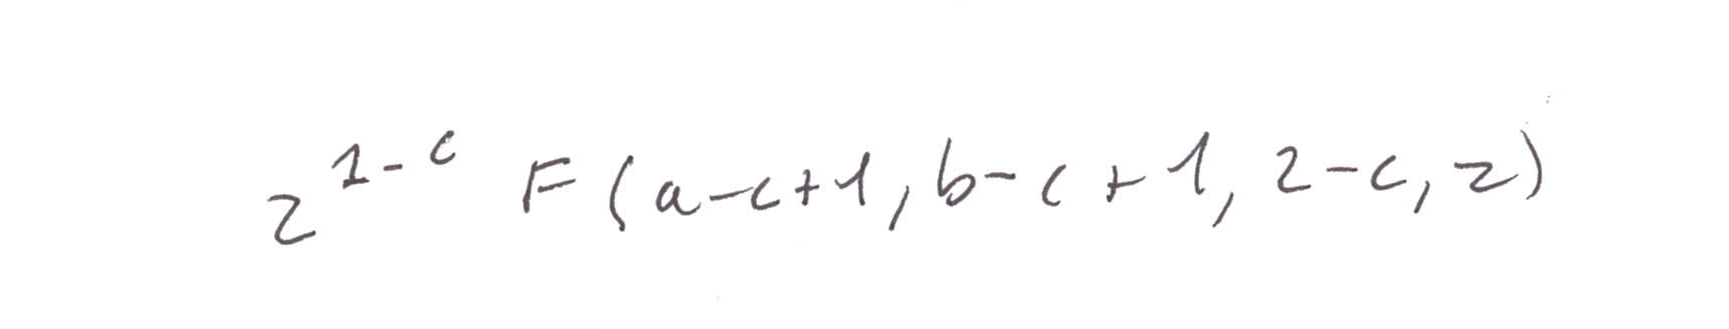 z^{1-c} F(a-c+1, b-c+1, 2-c, z)